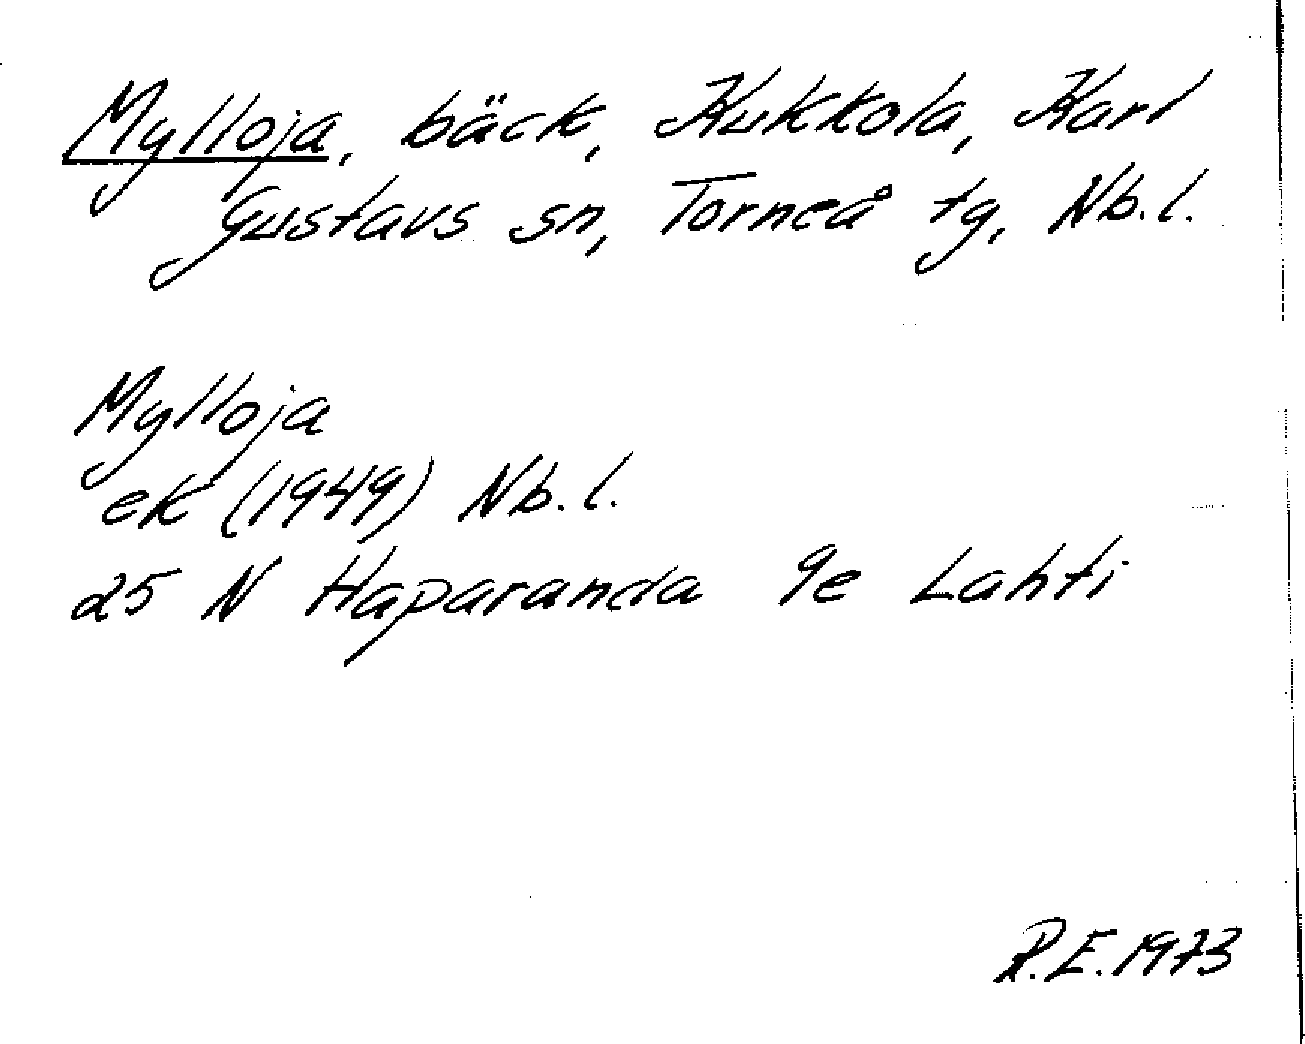 Mylloja, bäck, Kukkola, Karl
Gustavs sn, Torneå tg, Nb.l.
Mylloja
ek (1949) Nb.l.
25 N Haparanda 9e Lahti
R.E. 1973